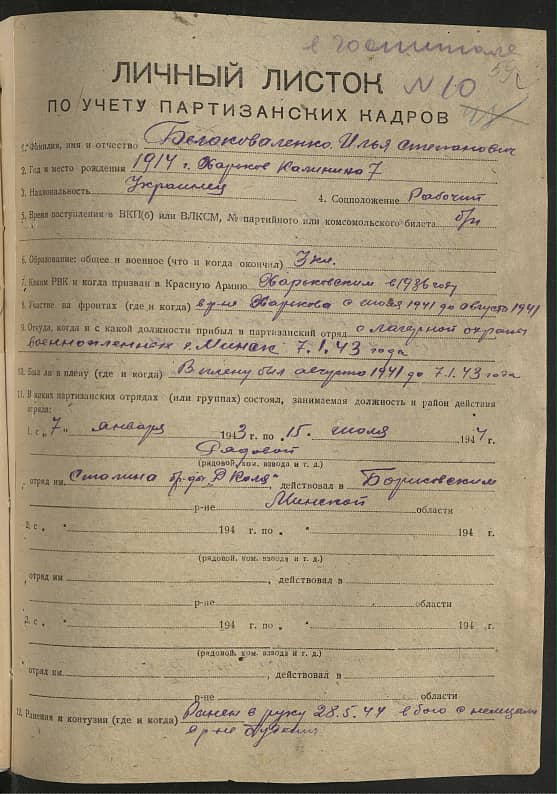 в госпитале
59
ЛИЧНЫЙ ЛИСТОК N 10
ПО УЧЕТУ ПАРТИЗАНСКИХ КАДРОВ
1. Фамилия, имя и отчество Белоковаленко Илья Степанович
2. Год и место рождения 1914 г. Харьков Калинина 7
3. Национальность Украинец 4. Соцположение Рабочий
5. Время поступления в ВКП(б) или ВЛКСМ, № партийного или комсомольского билета б/п
6. Образование: общее и военное (что и когда окончил) 7 кл.
7. Каким РВК и когда призван в Красную Армию Харьковским в 1936 году
8. Участие на фронтах (где и когда) в р-не Харькова с июля 1941 до августа 1941
9. Откуда, когда и с какой должности прибыл в партизанский отряд с лагерной охраны
военнопленных г. Минск 7.1.43 года
10. Был ли в плену (где и когда) В плену был август 1941 до 7.1.43 года
11. В каких партизанских отрядах (или группах) состоял, занимаемая должность и район действия
отряда:
1. с „7" января 1943 г. по 15. июля 1944 г.
Рядовой
(рядовой, ком. взвода и т. д.)
отряд им. Сталина бр-ды „Д. Коля" действовал в Борисовским
р-не Минской области
2. с „ " 194 г. по „ " 194 г.
(рядовой, ком. взвода и т. д.)
отряд им , действовал в
р-не области
3. с „ " 194 г. по „ " 194 г.
(рядовой, ком. взвода и т. д.)
отряд им. , действовал в
р-не области
12. Ранения и контузии (где и когда) Ранен в руку 28.5.44 в бою с немцами
в р-не